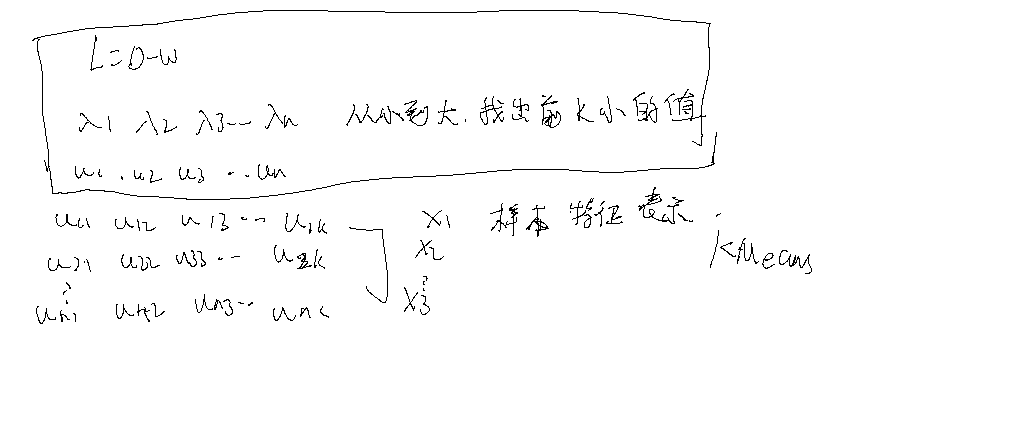 L=D-W
λ1 λ2 λ3... λn 从小到大.找出前K小的值
u1.u2 u3 ..un
u11 u12 u13... u1k x1 样本 特征 表示
u21 u22 u33... u2k x2 KMeans
un1 un2 un3.. unk x3